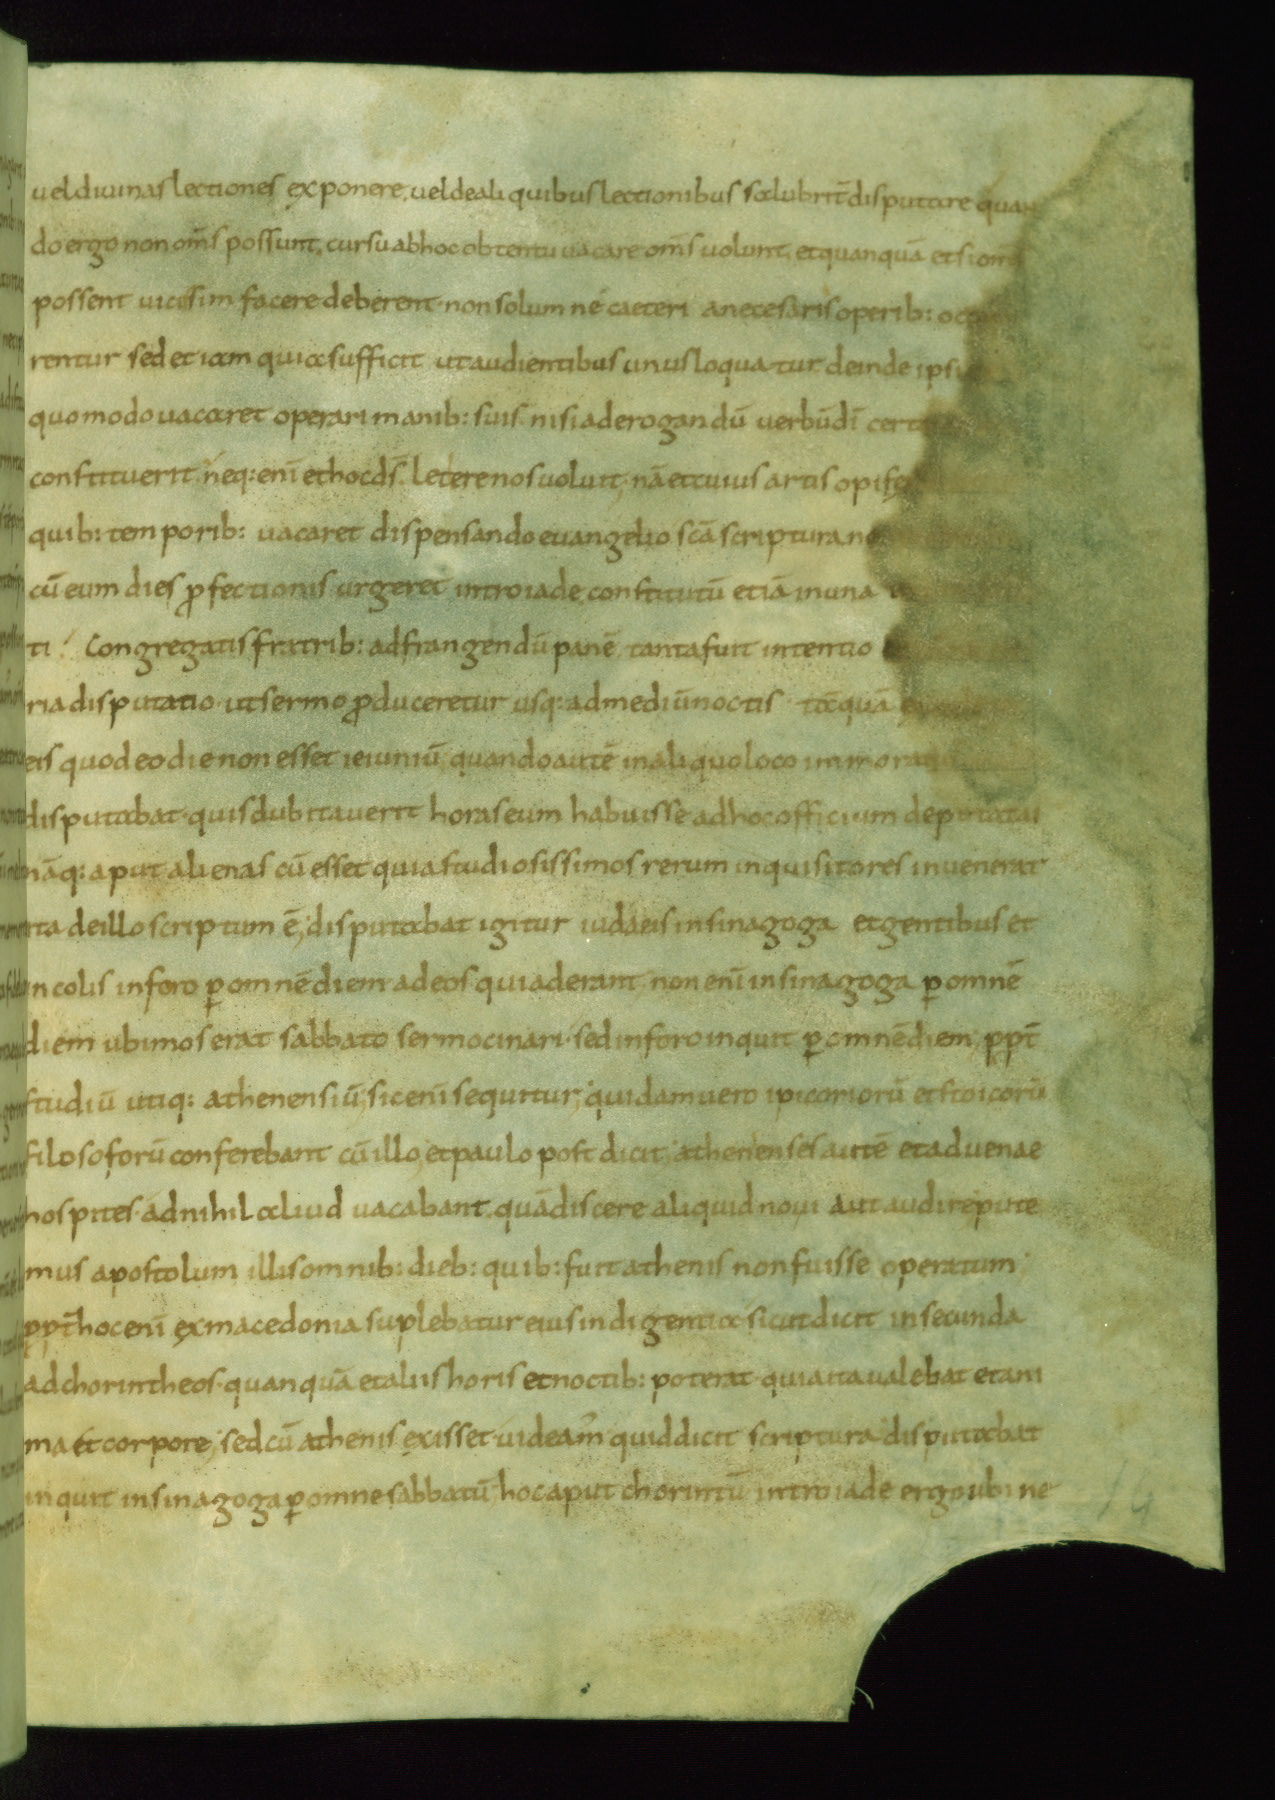 vel divinas lectiones exponere, vel de aliquibus lectionibus salubrit̄ disputare quan
do ergo non om̄s possunt, cur sub hoc obtentu vacare om̄s volunt, et quanquā et si om̄s
possent vicissim facere deberent· non solum ne caeteri a necesariis operib: occu
rentur sed etiam quia sufficit ut audientibus unus loquatur deinde ipsi
quomodo vacaret operari manib: suis· nisi ad erogandū verbū dī certa
constituerit neq: enī et hoc ds̄ latere nos voluit, nā et cuius artis opifex
quib: temporib: vacaret dispensando evangelio scā scriptura no
cū eum dies ꝓfectionis urgeret in troiade constitutū etiā in una
ti· Congregatis fratrib: ad frangendū panē, tanta fuit intentio
ria disputatio· ut sermo ꝓduceretur usq: ad mediū noctis· tāquā
eis quod eo die non esset ieiuniū, quando autē in aliquo loco immora
disputabat· quis dubitaverit horas eum habuisse ad hoc officium deputatas
nāq: aput alienas cū esset quia studiosissimos rerum inquisitores invenerat
ita de illo scriptum ē; disputabat igitur iudaeis in sinagoga et gentibus et
incolis in foro ꝑ omnē diem ad eos qui aderant· non enī in sinagoga ꝑ omnē
diem ubi mos erat sabbato sermocinari· sed in foro inquit ꝑ omnē diem, ꝓpt̄
studiū utiq: atheneniū; sic enī sequitur; quidam vero ipicoriorū et stoicorū
filosoforū conferebant cū illo, et paulo post dicit; athenenses autē et advenae
hospites· ad nihil aliud vacabant, quā discere aliquid novi aut audire pute
mus apostolum illis omnib: dieb: quib: fuit athenis non fuisse operatum·
ꝓpt̄ hoc enī ex macedonia suplebatur eius indigentia sicut dicit in secunda
ad chorintheos· quanquā et aliis horis et noctib: poterat· quia ita valebat et ani
ma et corpore; sed cū athenis exisset· videam̄ quid dicit scriptura disputabat
inquit in sinagoga ꝑ omne sabbatū hoc aput chorintū in troiade ergo ubi ne